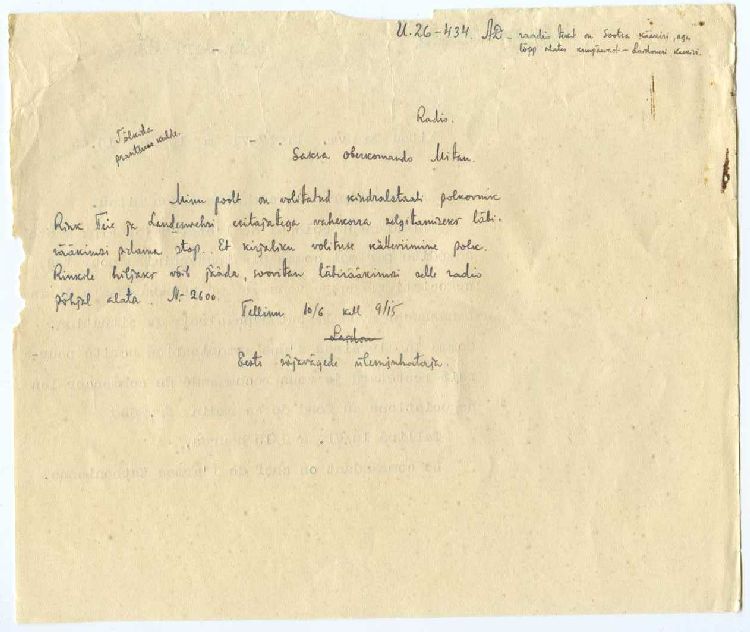 U. 26-434. AD - raadio tekst on Sootsa käekiri, aga
lõpp alates
Radio.
Tõlkida
prantsuse keelde.
Saksa oberkomando Mitau.
Minu poolt on volitatud kindralstaabi polkovnik
Rink Teie ja Landeswehri esitajatega vahekorra selgitamiseks läbi-
rääkimisi pidama stop. Et kirjaliku volituse kätteviimine polk.
Rinkile hiljaks võib jääda, soovitan läbirääkimisi selle radio
põhjal alata. N- 2600.
Tallinn 10/6 kell 9/15
Eesti sõjavägede ülemjuhataja.